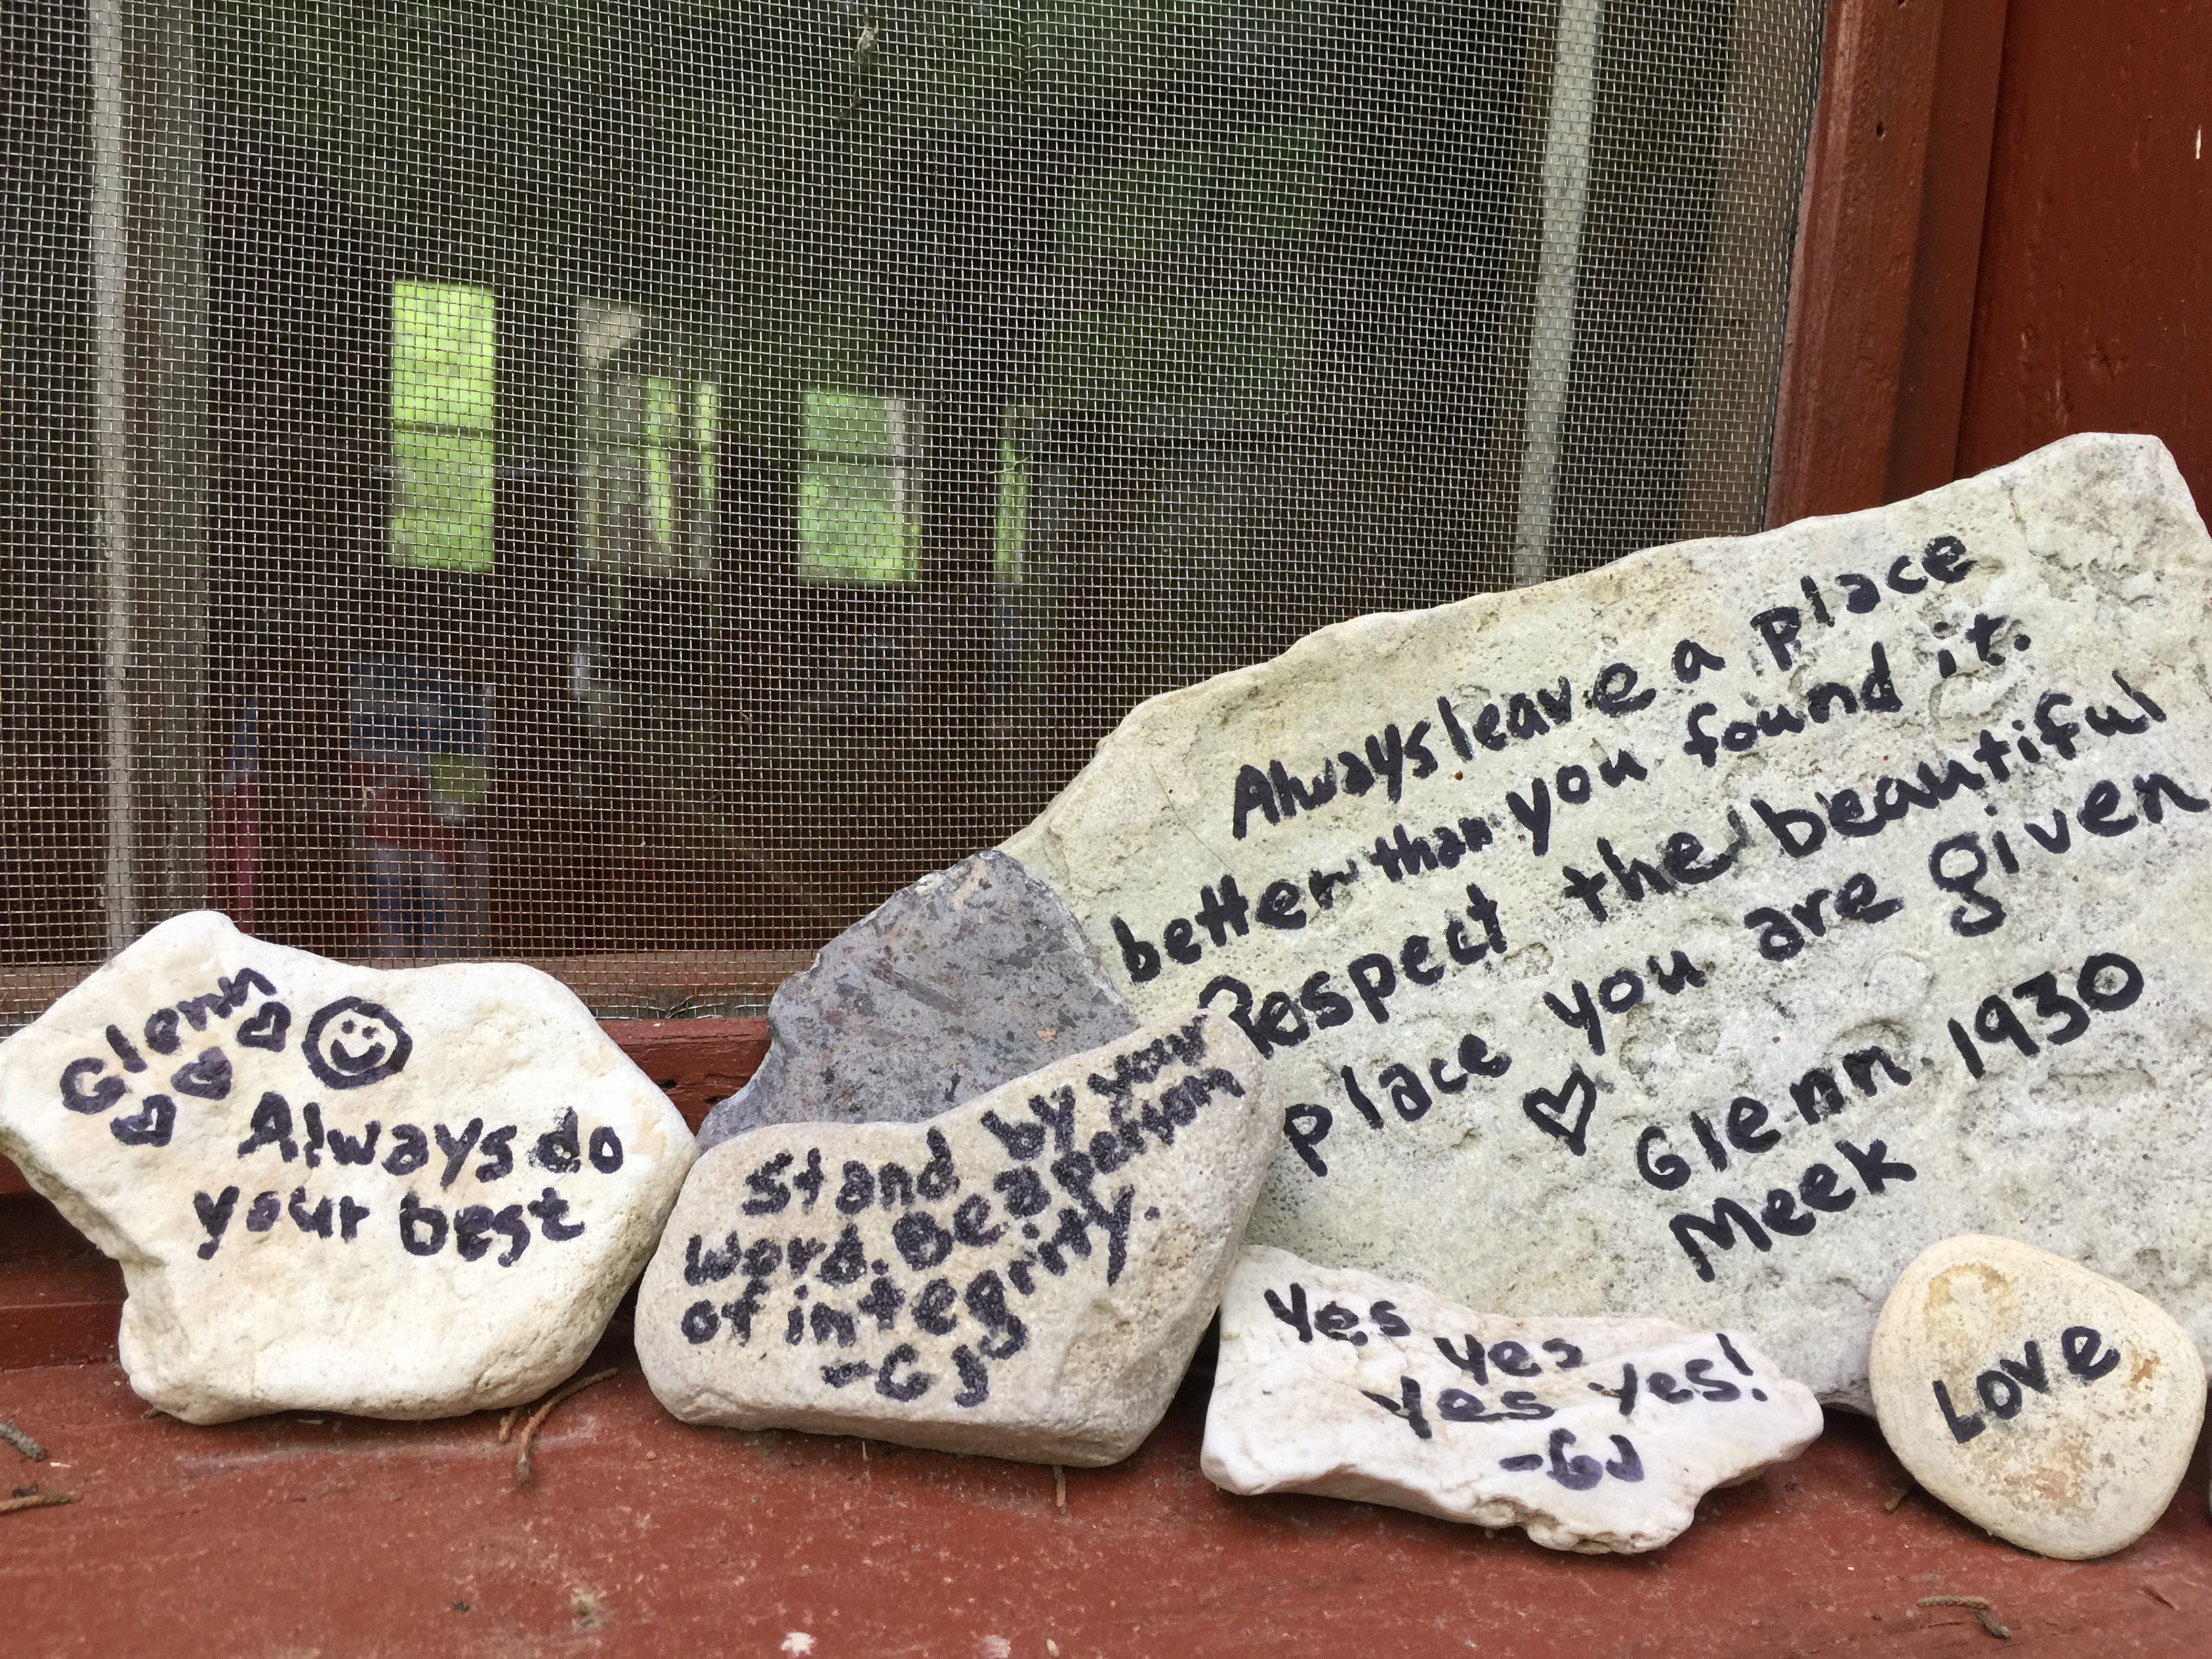 Glenn
Always do
your best
Stand by your
word. Be a person
of integrity.
-GJ
Always leave a place
better than you found it.
Respect the beautiful
place you are given
Glenn 1930
Meek
Yes yes
yes yes!
-GJ
Love